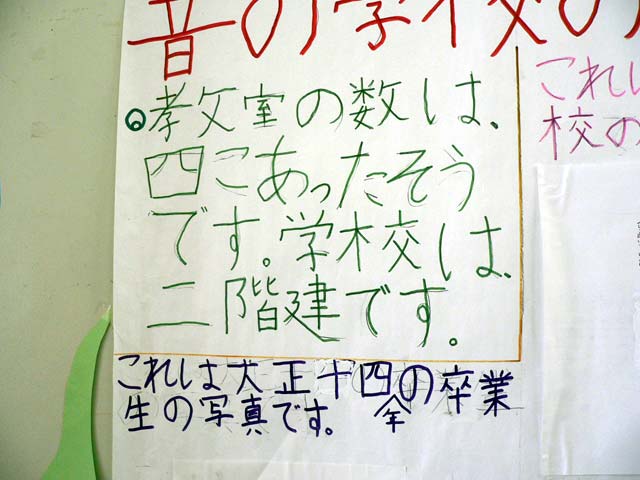 昔の学校の
◎教室の数は、
四こあったそう
です。学校は、
二階建です。
これは大正十四年の卒業
生の写真です。
これは
校の